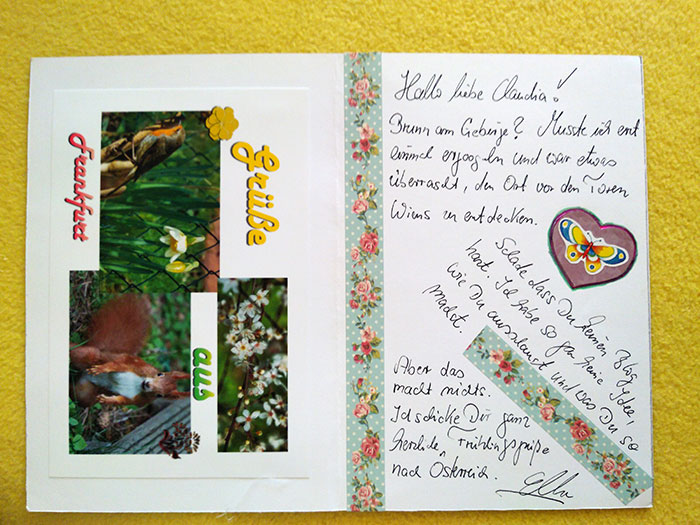 Grüße
aus
Frankfurt
Hallo liebe Claudia!
Brunn am Gebirge? Musste ich erst
einmal ergoogeln und war etwas
überrascht, den Ort vor den Toren
Wiens zu entdecken.
Schade dass Du keinen Blog
hast. Ich habe so gar keine Idee,
wie Du ausschaust und was Du so
machst.
Aber das
macht nichts.
Ich schicke Dir ganz
herzliche Frühlingsgrüße
nach Österreich.